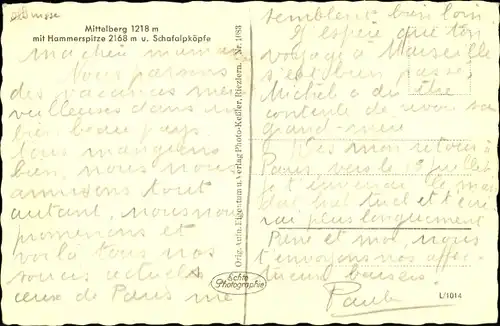 Mittelberg 1218 m
mit Hammerspitze 2168 m u. Schafalpköpfe
Ma chère maman
Nous passons
des vacances mer
veilleuses dans un
bien beau pays
tous mangeons
bien nous nous
amusons tout
autant, nous nous
promenons et
voilà tous nos
soucis actuels
ceux de Paris me
semblent bien loin.
J'espère que ton
voyage à Marseille
s'est bien passé
Michel a dû être
contente de revoir sa
grand-mère
Dès mon retour à
Paris, vers le 19 juillet
je t'enverrai le man
dat habituel et t'écri
rai plus longuement
Pierre et moi, nous
t'envoyons nos affec
tueux baisers.
Paule
Orig. Aufn. Eigentum u. Verlag Photo-Keßler, Riezlern. Nr. 1083
Echte
Photographie
L/1014